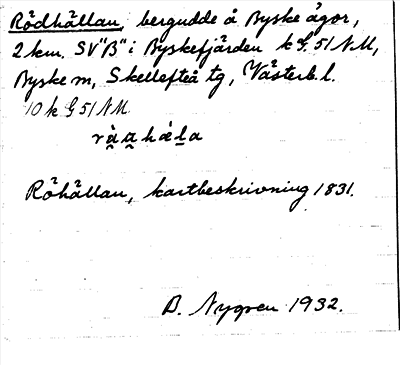 Rödhällan, bergudde å Byske ägor,
2 km. SV "B" i Byskefjärden k G. 51 NM,
Byske m, Skellefteå tg, Västerb. l.
10 k G 51 NM
Röhällan, kartbeskrivning 1831.
D. Nygren 1932.